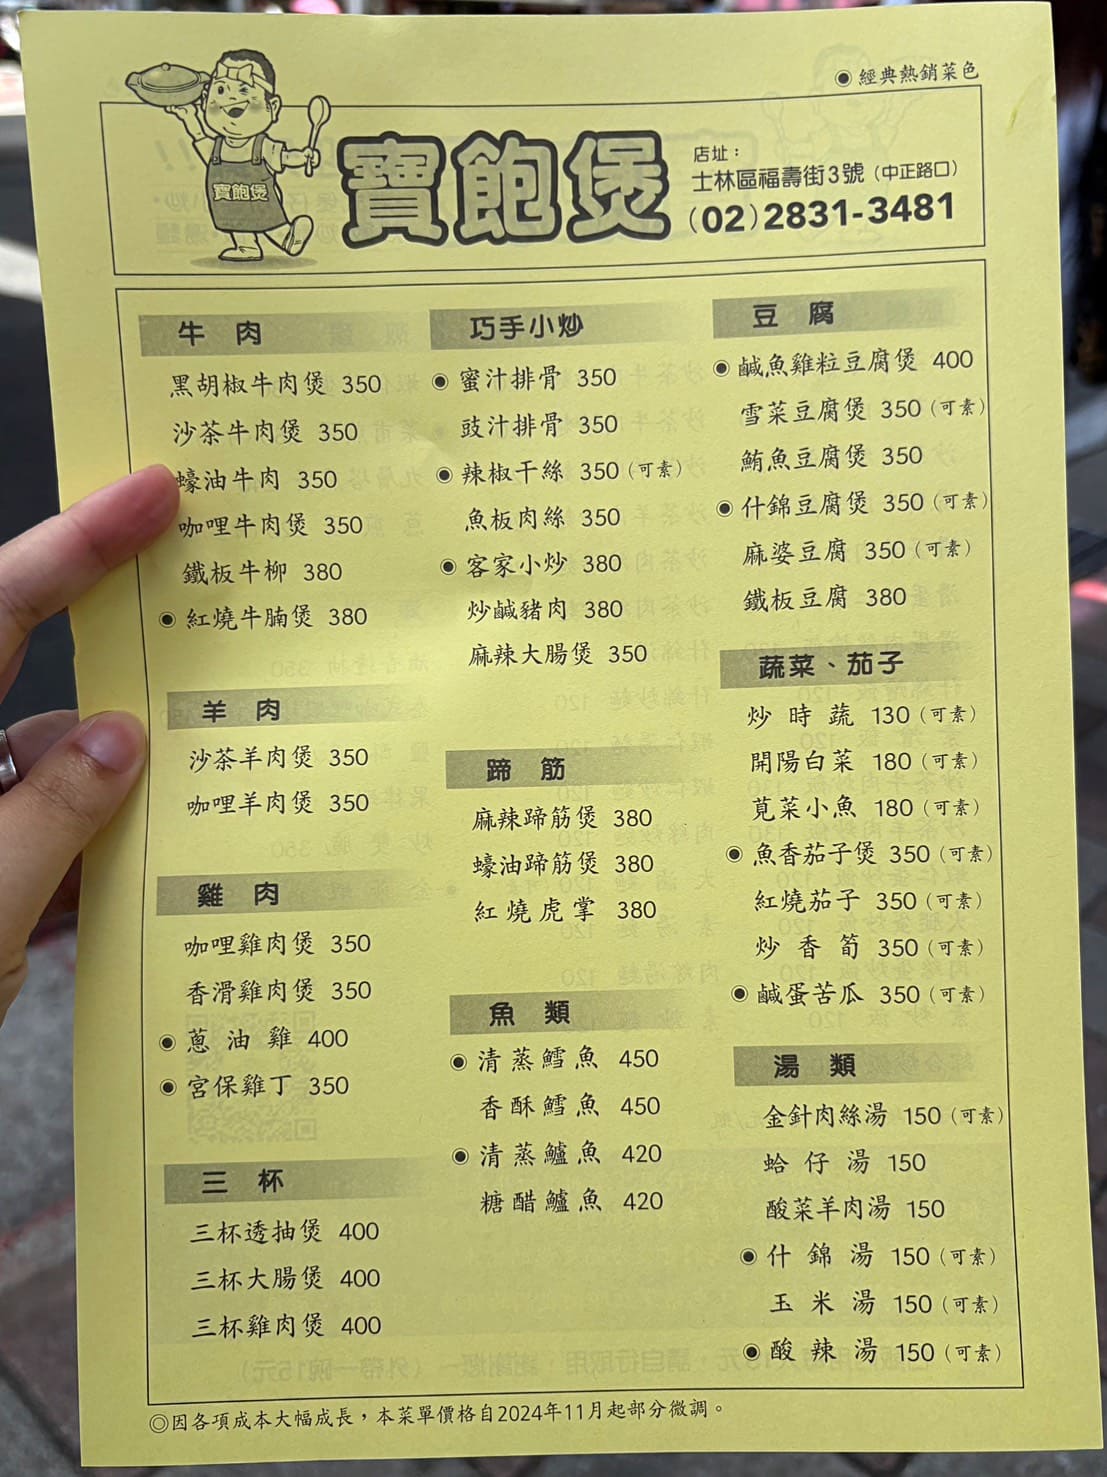 ◉經典熱銷菜色
寶飽煲
寶飽煲
店址：
士林區福壽街3號（中正路口）
(02)2831-3481
牛肉
黑胡椒牛肉煲 350
沙茶牛肉煲 350
蠔油牛肉 350
咖哩牛肉煲 350
鐵板牛柳 380
◉紅燒牛腩煲 380
羊肉
沙茶羊肉煲 350
咖哩羊肉煲 350
雞肉
咖哩雞肉煲 350
香滑雞肉煲 350
◉蔥油雞 400
◉宮保雞丁 350
三杯
三杯透抽煲 400
三杯大腸煲 400
三杯雞肉煲 400
巧手小炒
◉蜜汁排骨 350
豉汁排骨 350
◉辣椒干絲 350（可素）
魚板肉絲 350
◉客家小炒 380
炒鹹豬肉 380
麻辣大腸煲 350
蹄筋
麻辣蹄筋煲 380
蠔油蹄筋煲 380
紅燒虎掌 380
魚類
◉清蒸鱈魚 450
香酥鱈魚 450
◉清蒸鱸魚 420
糖醋鱸魚 420
豆腐
◉鹹魚雞粒豆腐煲 400
雪菜豆腐煲 350（可素）
鮪魚豆腐煲 350
◉什錦豆腐煲 350（可素）
麻婆豆腐 350（可素）
鐵板豆腐 380
蔬菜、茄子
炒時蔬 130（可素）
開陽白菜 180（可素）
莧菜小魚 180（可素）
◉魚香茄子煲 350（可素）
紅燒茄子 350（可素）
炒香筍 350（可素）
◉鹹蛋苦瓜 350（可素）
湯類
金針肉絲湯 150（可素）
蛤仔湯 150
酸菜羊肉湯 150
◉什錦湯 150（可素）
玉米湯 150（可素）
◉酸辣湯 150（可素）
◎因各項成本大幅成長，本菜單價格自2024年11月起部分微調。